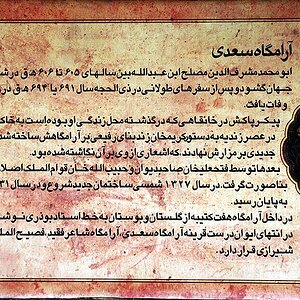 آرامگاه سعدی
ابو محمد مشرف الدین مصلح ابن عبدالله بین سالهای ۶۰۵ تا ۶۰۶ ه.ق در شی
جهان گشود و پس از سفرهای طولانی در ذی الحجه سال ۶۹۱ یا ۶۹۴ ه.ق در
وفات یافت.
پیکر پاکش در خانقاهی که در گذشته محل زندگی او بوده است به خاک
در عصر زندیه به دستور کریمخان زند بنای رفیعی بر آرامگاهش ساخته شد
جدیدی بر مزارش نهادند، که اشعاری از وی بر آن نگاشته شده بود.
بعدها توسط فتحعلیخان صاحبدیوان و حبیب الله خان قوام الملک اصلا
بنا صورت گرفت. در سال ۱۳۲۷ شمسی ساختمان جدید شروع و در سال ۳۱
به پایان رسید.
در داخل آرامگاه هفت کتیبه از گلستان و بوستان به خط استاد بوذری نوشت
در انتهای ایوان درست قرینه آرامگاه سعدی، آرامگاه شاعر فقید، فصیح المل
شیرازی قرار دارد.